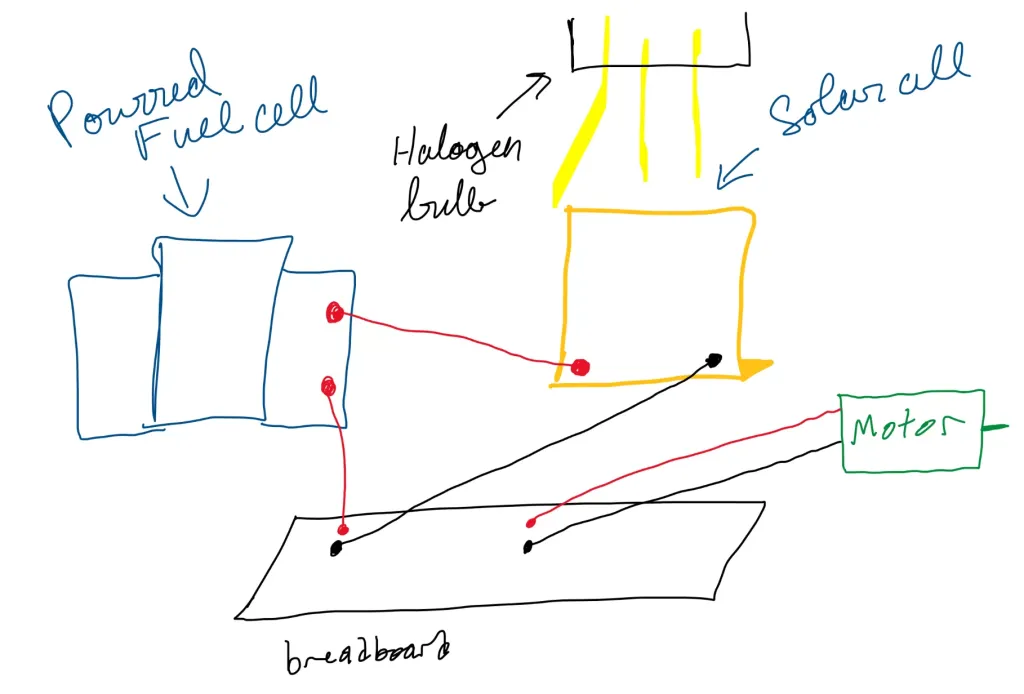 Powrred
Fuel cell
Halogen
bulb
Solar cell
Motor
breadboard